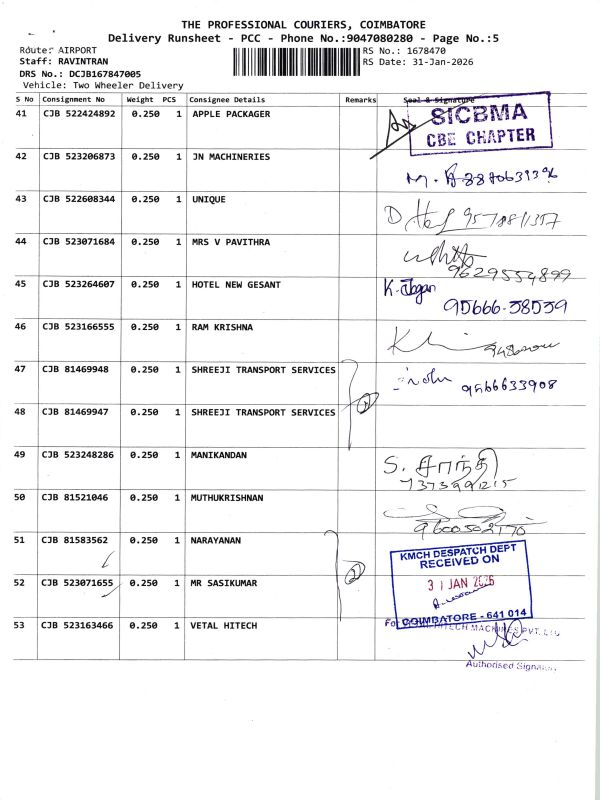 THE PROFESSIONAL COURIERS, COIMBATORE
Delivery Runsheet - PCC - Phone No.:9047080280 - Page No.:5
Route: AIRPORT
RS No.: 1678470
Staff: RAVINTRAN
RS Date: 31-Jan-2026
DRS No.: DCJB167847005
Vehicle: Two Wheeler Delivery
S No Consignment No Weight PCS Consignee Details Remarks Seal & Signature
41 CJB 522424892 0.250 1 APPLE PACKAGER
SICBMA
CBE CHAPTER
42 CJB 523206873 0.250 1 JN MACHINERIES
43 CJB 522608344 0.250 1 UNIQUE
44 CJB 523071684 0.250 1 MRS V PAVITHRA
9629554899
45 CJB 523264607 0.250 1 HOTEL NEW GESANT
K. Jagan
95666-38539
46 CJB 523166555 0.250 1 RAM KRISHNA
47 CJB 81469948 0.250 1 SHREEJI TRANSPORT SERVICES
9566633908
48 CJB 81469947 0.250 1 SHREEJI TRANSPORT SERVICES
2
49 CJB 523248286 0.250 1 MANIKANDAN
S. சாந்தி
7373991215
50 CJB 81521046 0.250 1 MUTHUKRISHNAN
9600502770
51 CJB 81583562 0.250 1 NARAYANAN
KMCH DESPATCH DEPT
RECEIVED ON
52 CJB 523071655 0.250 1 MR SASIKUMAR
2
31 JAN 2026
COIMBATORE - 641 014
53 CJB 523163466 0.250 1 VETAL HITECH
For HITECH MACHINES PVT. LTD
Authorised Signatory